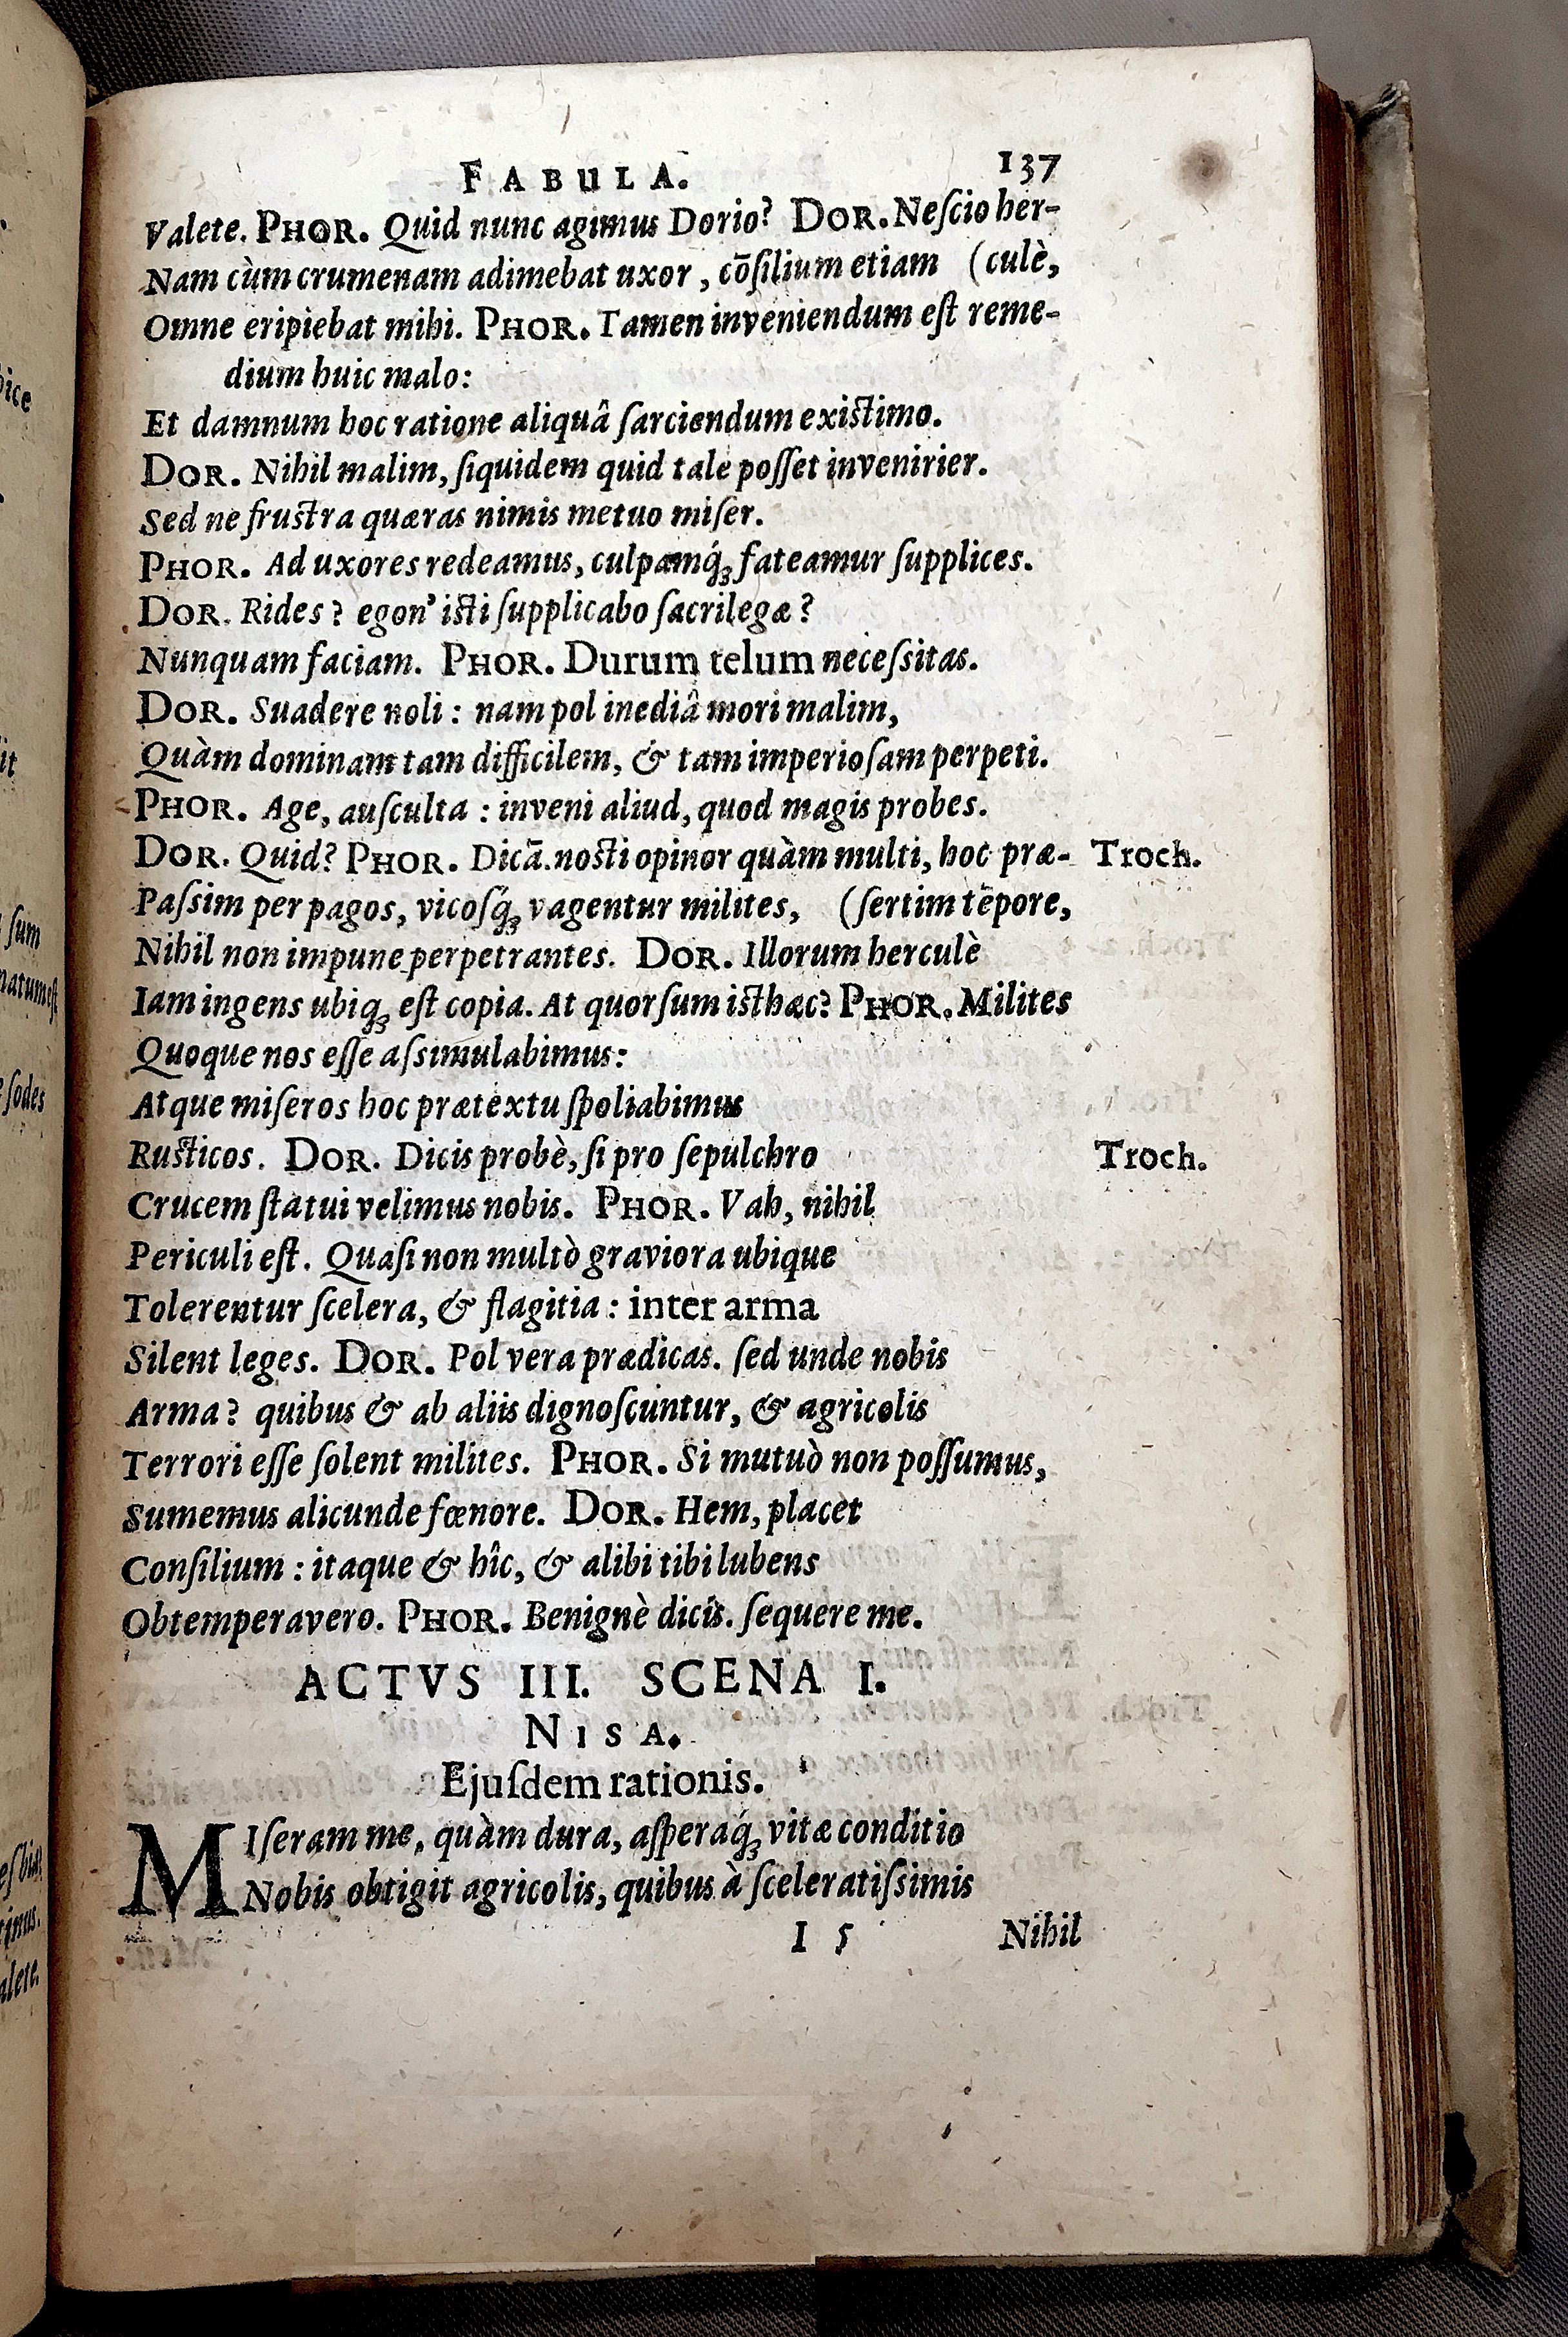 FABULA. 137
Valete. PHOR. Quid nunc agimus Dorio? DOR. Neſcio her-
Nam cùm crumenam adimebat uxor, cōſilium etiam (culè,
Omne eripiebat mihi. PHOR. Tamen inveniendum eſt reme-
dium huic malo:
Et damnum hoc ratione aliquâ ſarciendum exiſtimo.
DOR. Nihil malim, ſiquidem quid tale poſſet invenirier.
Sed ne fruſtra quæras nimis metuo miſer.
PHOR. Ad uxores redeamus, culpamq́ꝫ fateamur ſupplices.
DOR. Rides? egon' iſti ſupplicabo ſacrilegæ?
Nunquam faciam. PHOR. Durum telum neceſsitas.
DOR. Suadere noli: nam pol inediâ mori malim,
Quàm dominam tam difficilem, & tam imperioſam perpeti.
PHOR. Age, auſculta: inveni aliud, quod magis probes.
DOR. Quid? PHOR. Dicā. noſti opinor quàm multi, hoc præ- Troch.
Paſsim per pagos, vicoſq́ꝫ vagentur milites, (ſertim tēpore,
Nihil non impune perpetrantes. DOR. Illorum herculè
Iam ingens ubiqꝫ eſt copia. At quorſum iſthæc? PHOR. Milites
Quoque nos eſſe aſsimulabimus:
Atque miſeros hoc prætextu ſpoliabimus
Ruſticos. DOR. Dicis probè, ſi pro ſepulchro Troch.
Crucem ſtatui velimus nobis. PHOR. Vah, nihil
Periculi eſt. Quaſi non multò graviora ubique
Tolerentur ſcelera, & flagitia: inter arma
Silent leges. DOR. Pol vera prædicas. ſed unde nobis
Arma? quibus & ab aliis dignoſcuntur, & agricolis
Terrori eſſe ſolent milites. PHOR. Si mutuò non poſſumus,
Sumemus alicunde fœnore. DOR. Hem, placet
Conſilium: itaque & hîc, & alibi tibi lubens
Obtemperavero. PHOR. Benignè dicis. ſequere me.
ACTVS III. SCENA I.
NISA.
Ejuſdem rationis.
MIſeram me, quàm dura, aſperaq́ꝫ vitæ conditio
Nobis obtigit agricolis, quibus à ſceleratiſsimis
I 5 Nihil